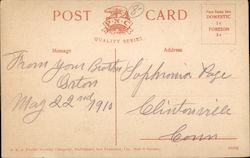 POST CARD
PNC
QUALITY SERIES
Place Stamp Here
DOMESTIC
1c
FOREIGN
2c
Message
Address
From your Brother
Orton
May 22nd 1910
Sophronia Page
Clintonville
Conn